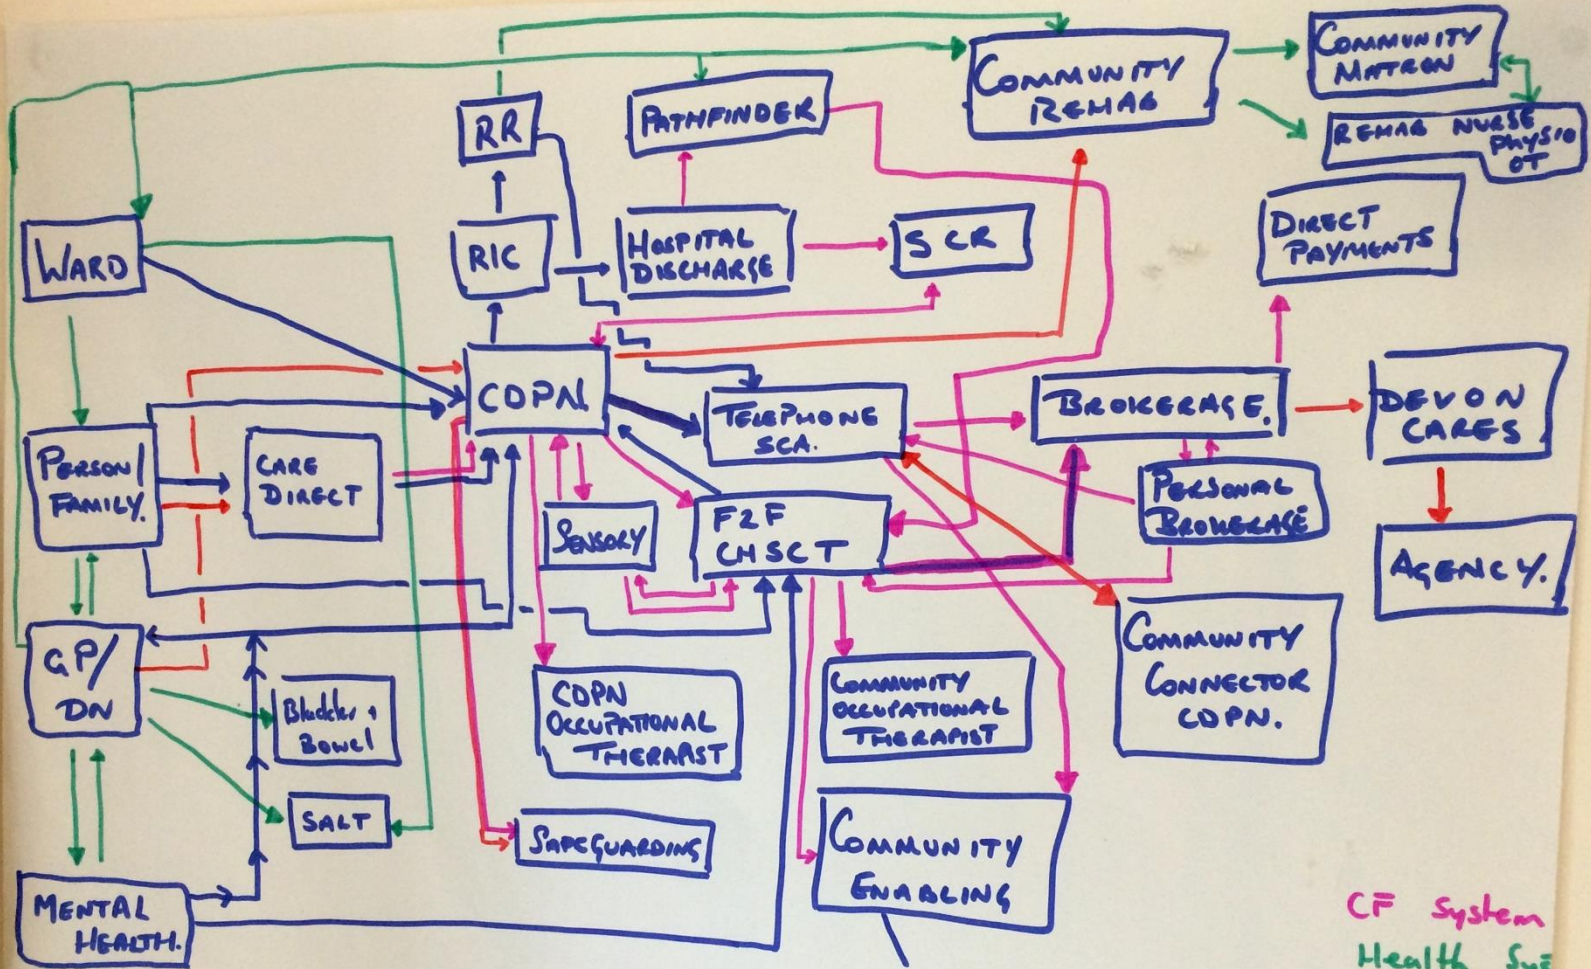 COMMUNITY
MATRON
COMMUNITY
REHAB
RR
PATHFINDER
REHAB NURSE
PHYSIO
OT
WARD
RIC
HOSPITAL
DISCHARGE
SCR
DIRECT
PAYMENTS
CDPN.
TELEPHONE
SCA.
BROKERAGE.
DEVON
CARES
PERSON/
FAMILY.
CARE
DIRECT
SENSORY
F2F
CHSCT
PERSONAL
BROKERAGE
AGENCY.
GP/
DN
Bladder +
Bowel
CDPN
OCCUPATIONAL
THERAPIST
COMMUNITY
OCCUPATIONAL
THERAPIST
COMMUNITY
CONNECTOR
CDPN.
SALT
SAFEGUARDING
COMMUNITY
ENABLING
MENTAL
HEALTH.
CF System
Health